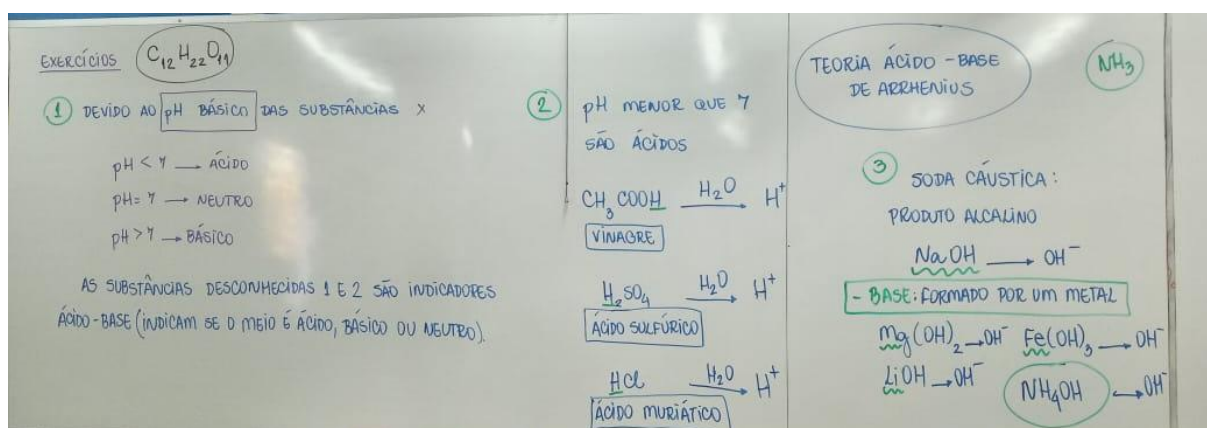 EXERCÍCIOS C₁₂H₂₂O₁₁
1 DEVIDO AO pH BÁSICO DAS SUBSTÂNCIAS X
pH < 7 → ÁCIDO
pH = 7 → NEUTRO
pH > 7 → BÁSICO
AS SUBSTÂNCIAS DESCONHECIDAS 1 E 2 SÃO INDICADORES
ÁCIDO-BASE (INDICAM SE O MEIO É ÁCIDO, BÁSICO OU NEUTRO).
2 pH MENOR QUE 7
SÃO ÁCIDOS
CH₃COOH H₂O → H⁺
VINAGRE
H₂SO₄ H₂O → H⁺
ÁCIDO SULFÚRICO
HCl H₂O → H⁺
ÁCIDO MURIÁTICO
TEORIA ÁCIDO-BASE
DE ARRHENIUS
NH₃
3 SODA CÁUSTICA:
PRODUTO ALCALINO
NaOH → OH⁻
- BASE: FORMADO POR UM METAL
Mg(OH)₂ → OH⁻ Fe(OH)₃ → OH⁻
LiOH → OH⁻ NH₄OH → OH⁻